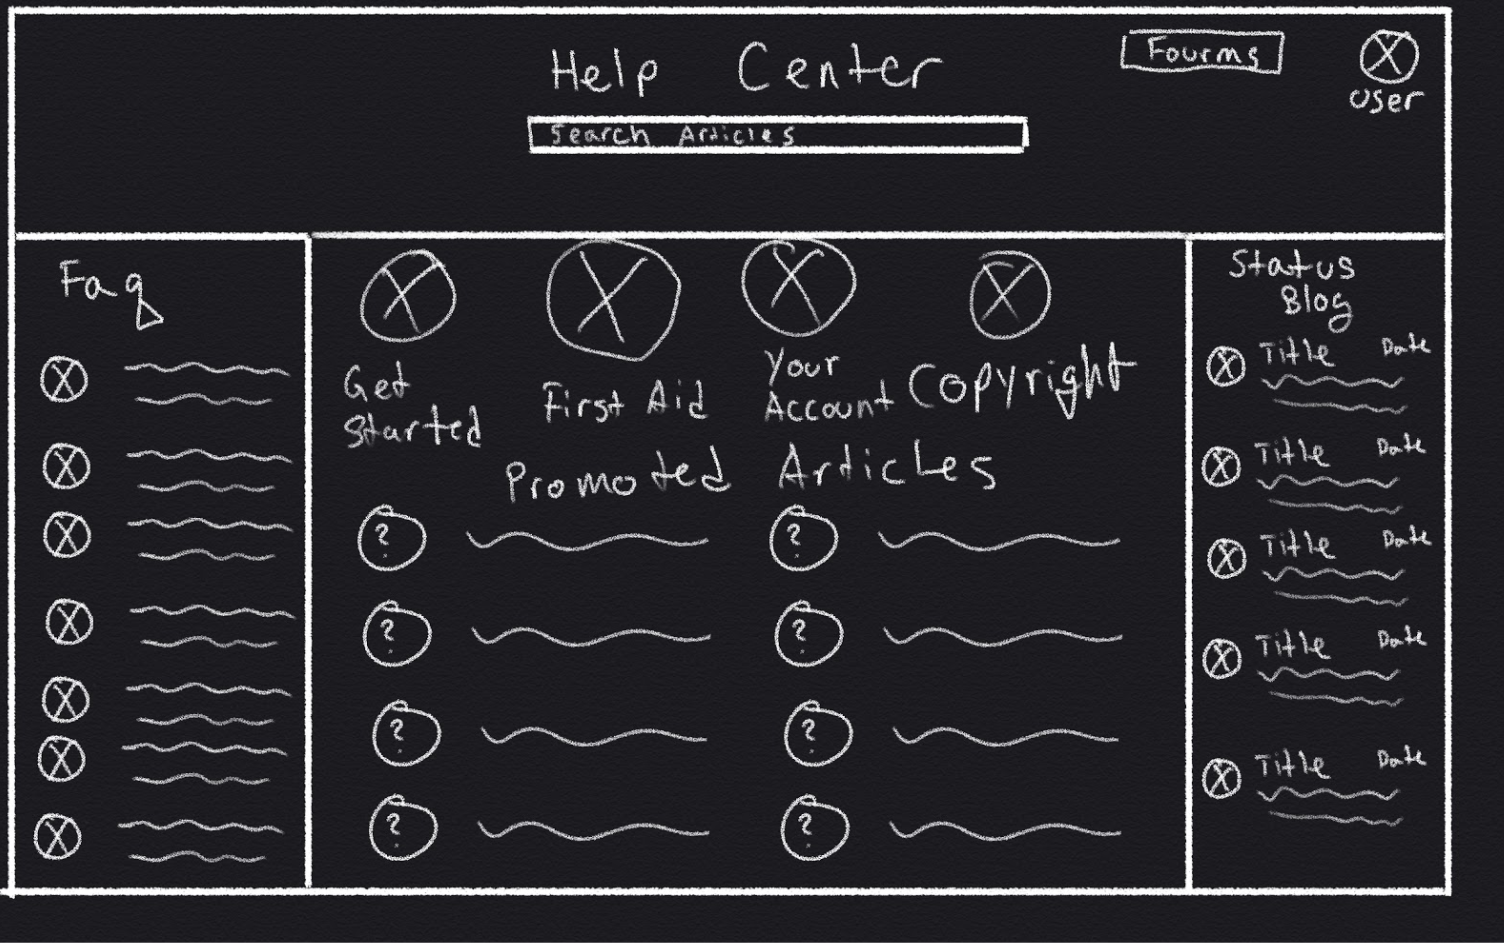 Help Center
Fourms
User
Search Articles
Faq
Get
Started
First Aid
Your
Account
Copyright
Promoted Articles
?
?
?
?
?
?
?
?
Status
Blog
Title Date
Title Date
Title Date
Title Date
Title Date